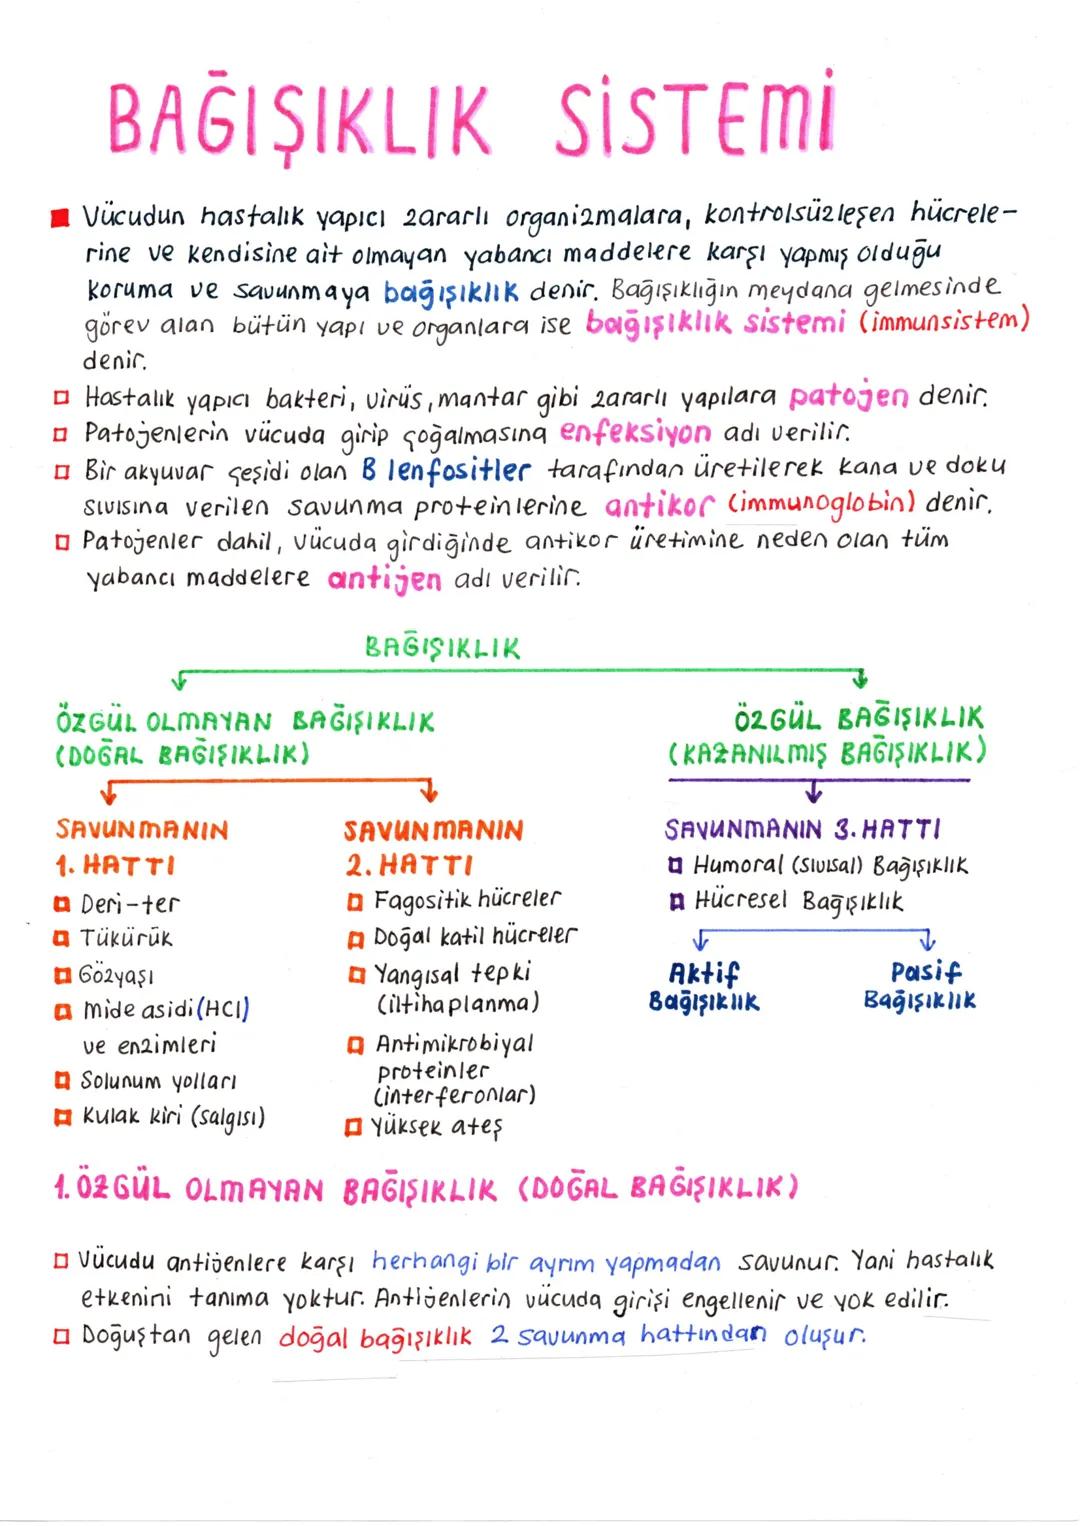 BAĞIŞIKLIK SİSTEMİ
Vücudun hastalık yapıcı zararlı organizmalara, kontrolsüzleşen hücrele-
rine ve kendisine ait olmayan yabancı maddelere karşı yapmış olduğu
koruma ve savunmaya bağışıklık denir. Bağışıklığın meydana gelmesinde
görev alan bütün yapı ve organlara ise bağışıklık sistemi (immunsistem)
denir.
Hastalık yapıcı bakteri, virüs, mantar gibi zararlı yapılara patojen denir.
Patojenlerin vücuda girip çoğalmasına enfeksiyon adı verilir.
Bir akyuvar çeşidi olan B lenfositler tarafından üretilerek kana ve doku
sıvısına verilen savunma proteinlerine antikor (immunoglobin) denir.
Patojenler dahil, vücuda girdiğinde antikor üretimine neden olan tüm
yabancı maddelere antijen adı verilir.
BAĞIŞIKLIK
ÖZGÜL OLMAYAN BAĞIŞIKLIK
(DOĞAL BAĞIŞIKLIK)
SAVUNMANIN
1. HATTI
Deri-ter
Tükürük
Gözyaşı
Mide asidi (HCl)
ve enzimleri
Solunum yolları
Kulak kiri (salgısı)
SAVUNMANIN
2. HATTI
Fagositik hücreler
Doğal katil hücreler
Yangısal tepki
(iltihaplanma)
Antimikrobiyal
proteinler
(interferonlar)
Yüksek ateş
ÖZGÜL BAĞIŞIKLIK
(KAZANILMIŞ BAĞIŞIKLIK)
SAVUNMANIN 3. HATTI
Humoral (sıvısal) Bağışıklık
Hücresel Bağışıklık
Aktif
Bağışıklık
Pasif
Bağışıklık
1. ÖZGÜL OLMAYAN BAĞIŞIKLIK (DOĞAL BAĞIŞIKLIK)
Vücudu antijenlere karşı herhangi bir ayrım yapmadan savunur. Yani hastalık
etkenini tanıma yoktur. Antijenlerin vücuda girişi engellenir ve yok edilir.
Doğuştan gelen doğal bağışıklık 2 savunma hattından oluşur.